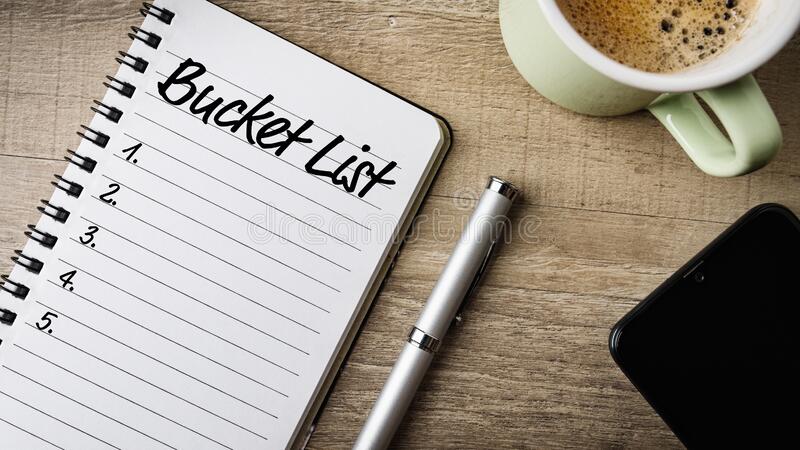 Bucket List
1.
2.
3.
4.
5.
dreamstime